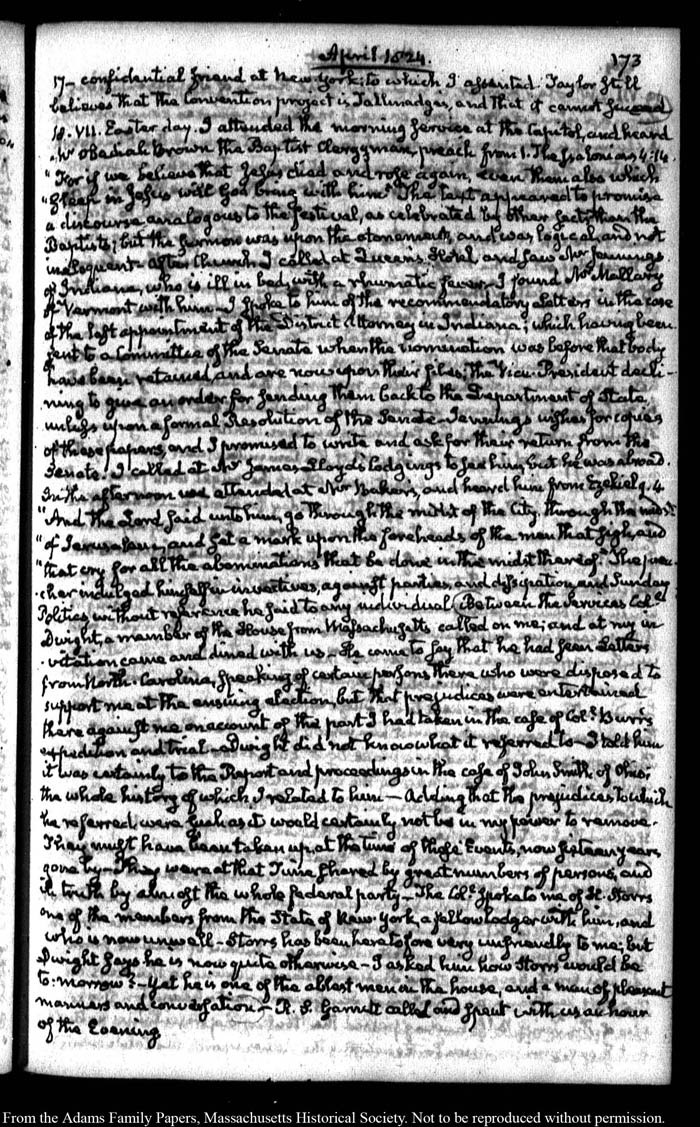 April 1824.
173
17- confidential friend at New York; to which I assented. Taylor still
believes that the Convention project is Tallmadge's, and that it cannot succeed
18. VII. Easter day. I attended the morning service at the Capitol, and heard
Mr Obadiah Brown the Baptist Clergyman, preach from 1. Thessalonians 4:14.
"For if we believe that Jesus died and rose again, even them also which
"sleep in Jesus will God bring with him." The text appeared to promise
a discourse analogous to the festival, as celebrated by other sects than the
Baptists; but the sermon was upon the atonement, and was logical, and not
ineloquent- After Church I called at Queens Hotel, and saw Mr Jennings
of Indiana, who is ill in bed, with a rhumatic fever- I found Mr Mallary
of Vermont with him- I spoke to him of the recommendatory Letters in the case
of the last appointment of the District Attorney in Indiana; which having been
sent to a Committee of the Senate when the nomination was before that body
have been retained, and are now upon their files; the Vice-President decli-
ning to give an order for sending them back to the Department of State,
unless upon a formal Resolution of the Senate- Jennings wishes for copies
of these papers, and I promised to write and ask for their return from the
Senate. I called at Mr James Lloyd's lodgings to see him, but he was abroad.
In the afternoon we attended at Mr Baker's, and heard him from Ezekiel 9. 4.
"And the Lord said unto him, go through the midst of the City, through the midst
"of Jerusalem, and set a mark upon the foreheads of the men that sigh, and
"that cry for all the abominations that be done in the midst thereof." The prea-
cher indulged himself in invectives, against parties, and dissipation, and Sunday
Politics without reference he said to any individual (Between the services Col.l
Dwight, a member of the House from Massachusetts called on me; and at my in-
vitation came and dined with us- He came to say that he had seen Letters
from North-Carolina, speaking of certain persons there who were disposed to
support me at the ensuing election, but that prejudices were entertained
there against me on account of the part I had taken in the case of Col.l Burr's
expedition and trial- Dwight did not know what it referred to- I told him
it was certainly to the Report and proceedings in the case of John Smith of Ohio;
the whole history of which I related to him- Adding that the prejudices to which
he referred were such as it would certainly not be in my power to remove.
They must have been taken up, at the time of those Events, now fifteen years
gone by- They were at that time shared by great numbers of persons, and
in truth by almost the whole federal party- The Col.l spoke to me of H. Storrs
one of the members from the State of New-York, a fellow lodger with him, and
who is now unwell- Storrs has been heretofore very unfriendly to me; but
Dwight says he is now quite otherwise- I asked him how Storrs would be
to-morrow?- Yet he is one of the ablest men in the house, and a man of pleasant
manners and conversation- R. S. Garnett called and spent with us an hour
of the Evening
From the Adams Family Papers, Massachusetts Historical Society. Not to be reproduced without permission.